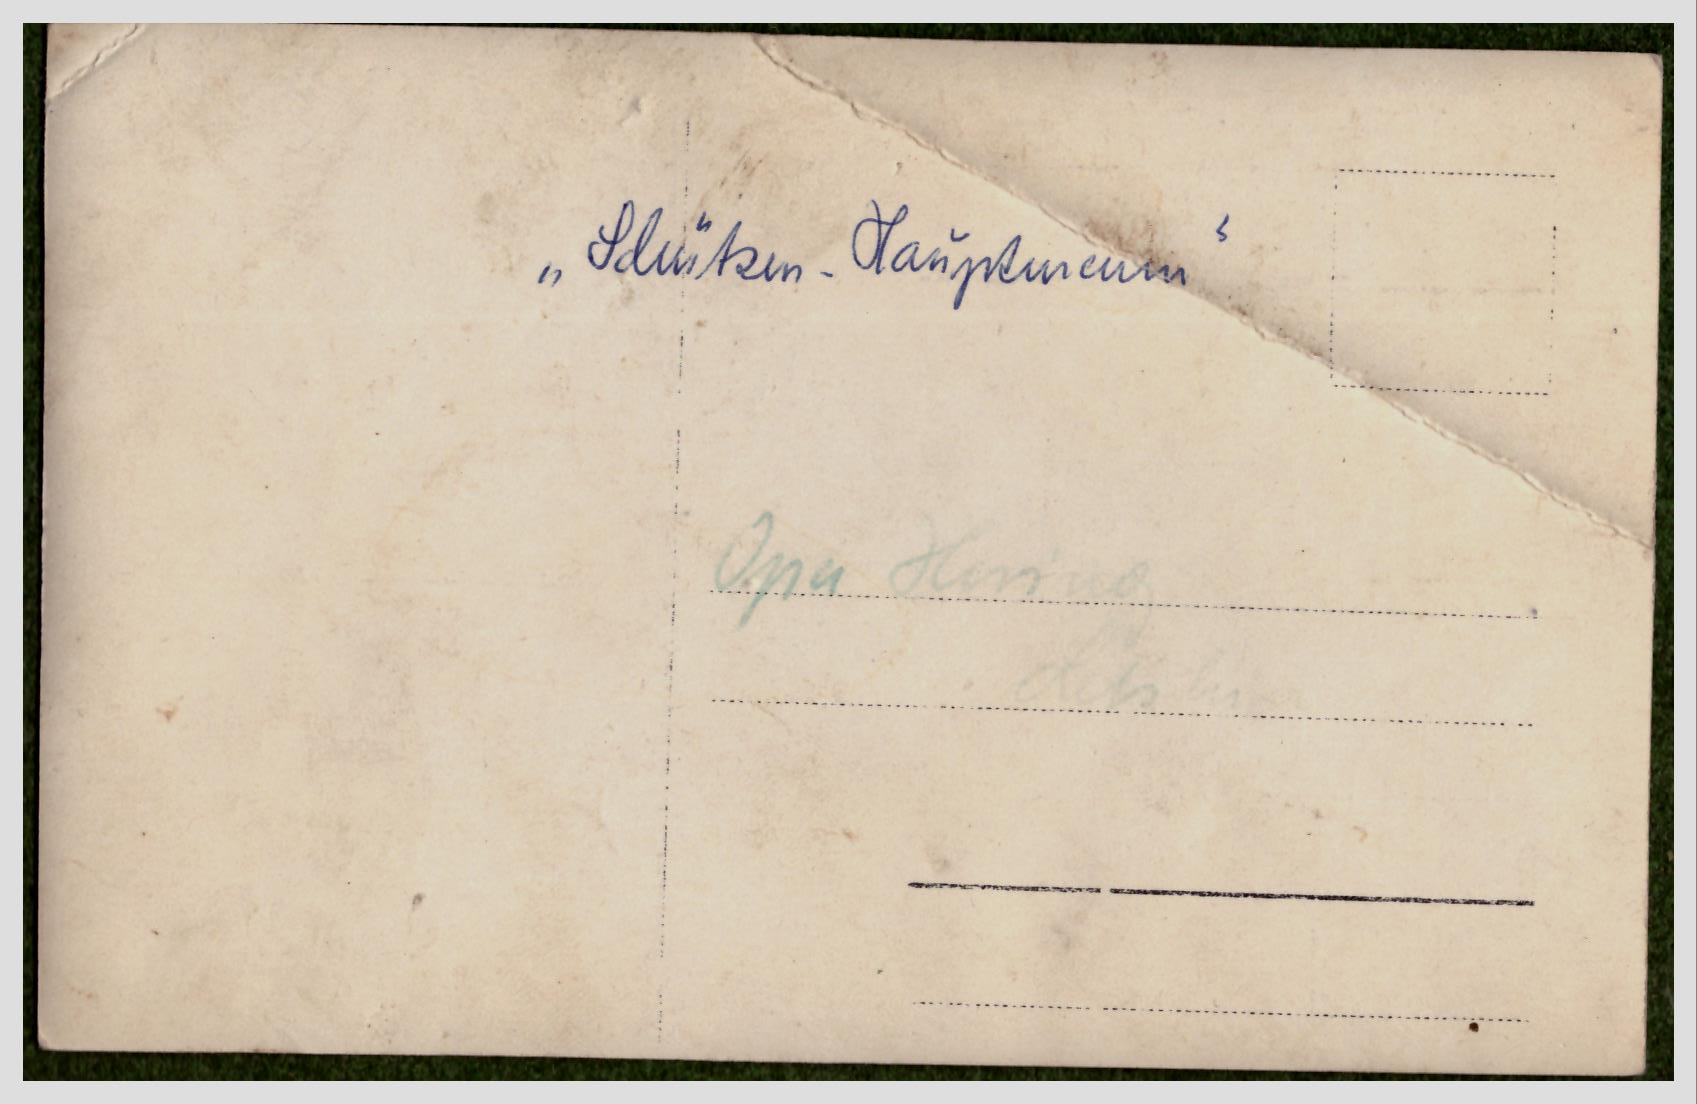 „Schützen-Hauptmann“
Opa Hering